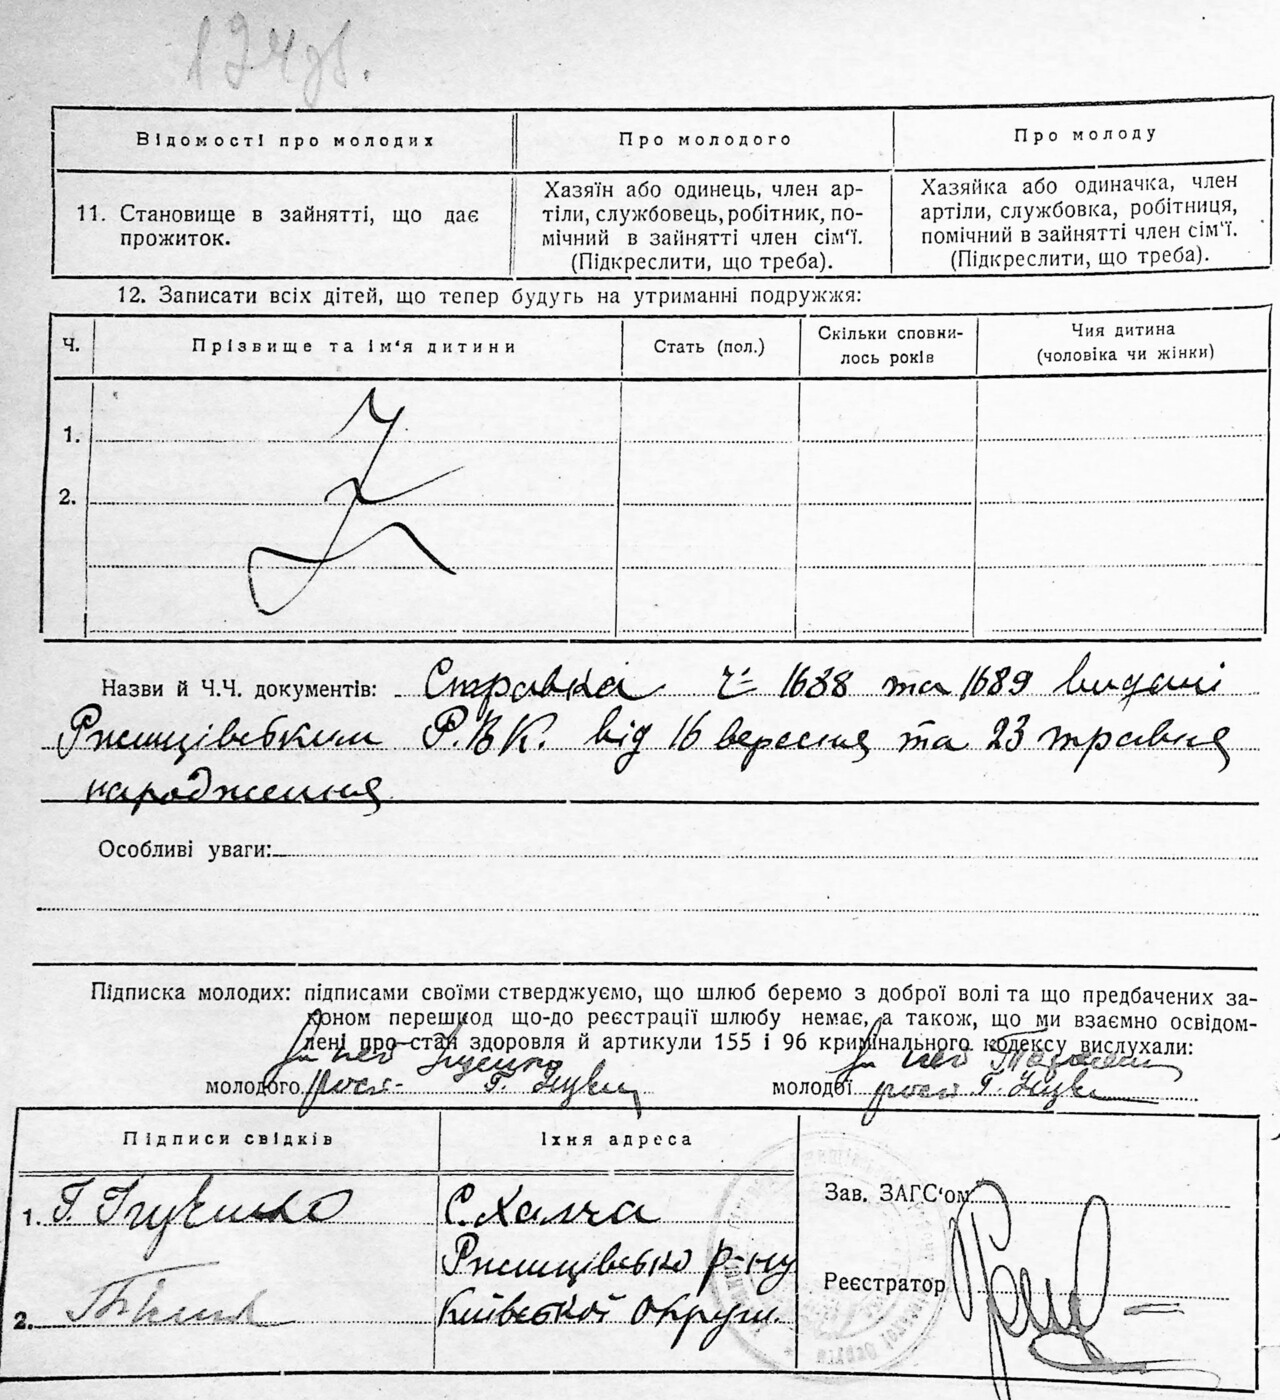 124 зв.
Відомості про молодих
Про молодого
Про молоду
11. Становище в зайнятті, що дає
прожиток.
Хазяїн або одинець, член ар-
тіли, службовець, робітник, по-
мічний в зайнятті член сім'ї.
(Підкреслити, що треба).
Хазяйка або одиначка, член
артіли, службовка, робітниця,
помічний в зайнятті член сім'ї.
(Підкреслити, що треба).
12. Записати всіх дітей, що тепер будуть на утриманні подружжя:
Ч.
Прізвище та ім'я дитини
Стать (пол.)
Скільки сповни-
лось років
Чия дитина
(чоловіка чи жінки)
1.
2.
Назви й Ч.Ч. документів: Справка Ч 1688 та 1689 видані
Ржищівським Р.В.К. від 16 вересня та 23 травня
народження
Особливі уваги:
Підписка молодих: підписами своїми стверджуємо, що шлюб беремо з доброї волі та що предбачених за-
коном перешкод що-до реєстрації шлюбу немає, а також, що ми взаємно освідом-
лені про стан здоровля й артикули 155 і 96 кримінального кодексу вислухали:
молодого
молодої
Підписи свідків
Їхня адреса
1. Г.
С. Халча
Ржищівсько р-ну
Київської округи.
2.
Зав. ЗАГС'ом
Реєстратор